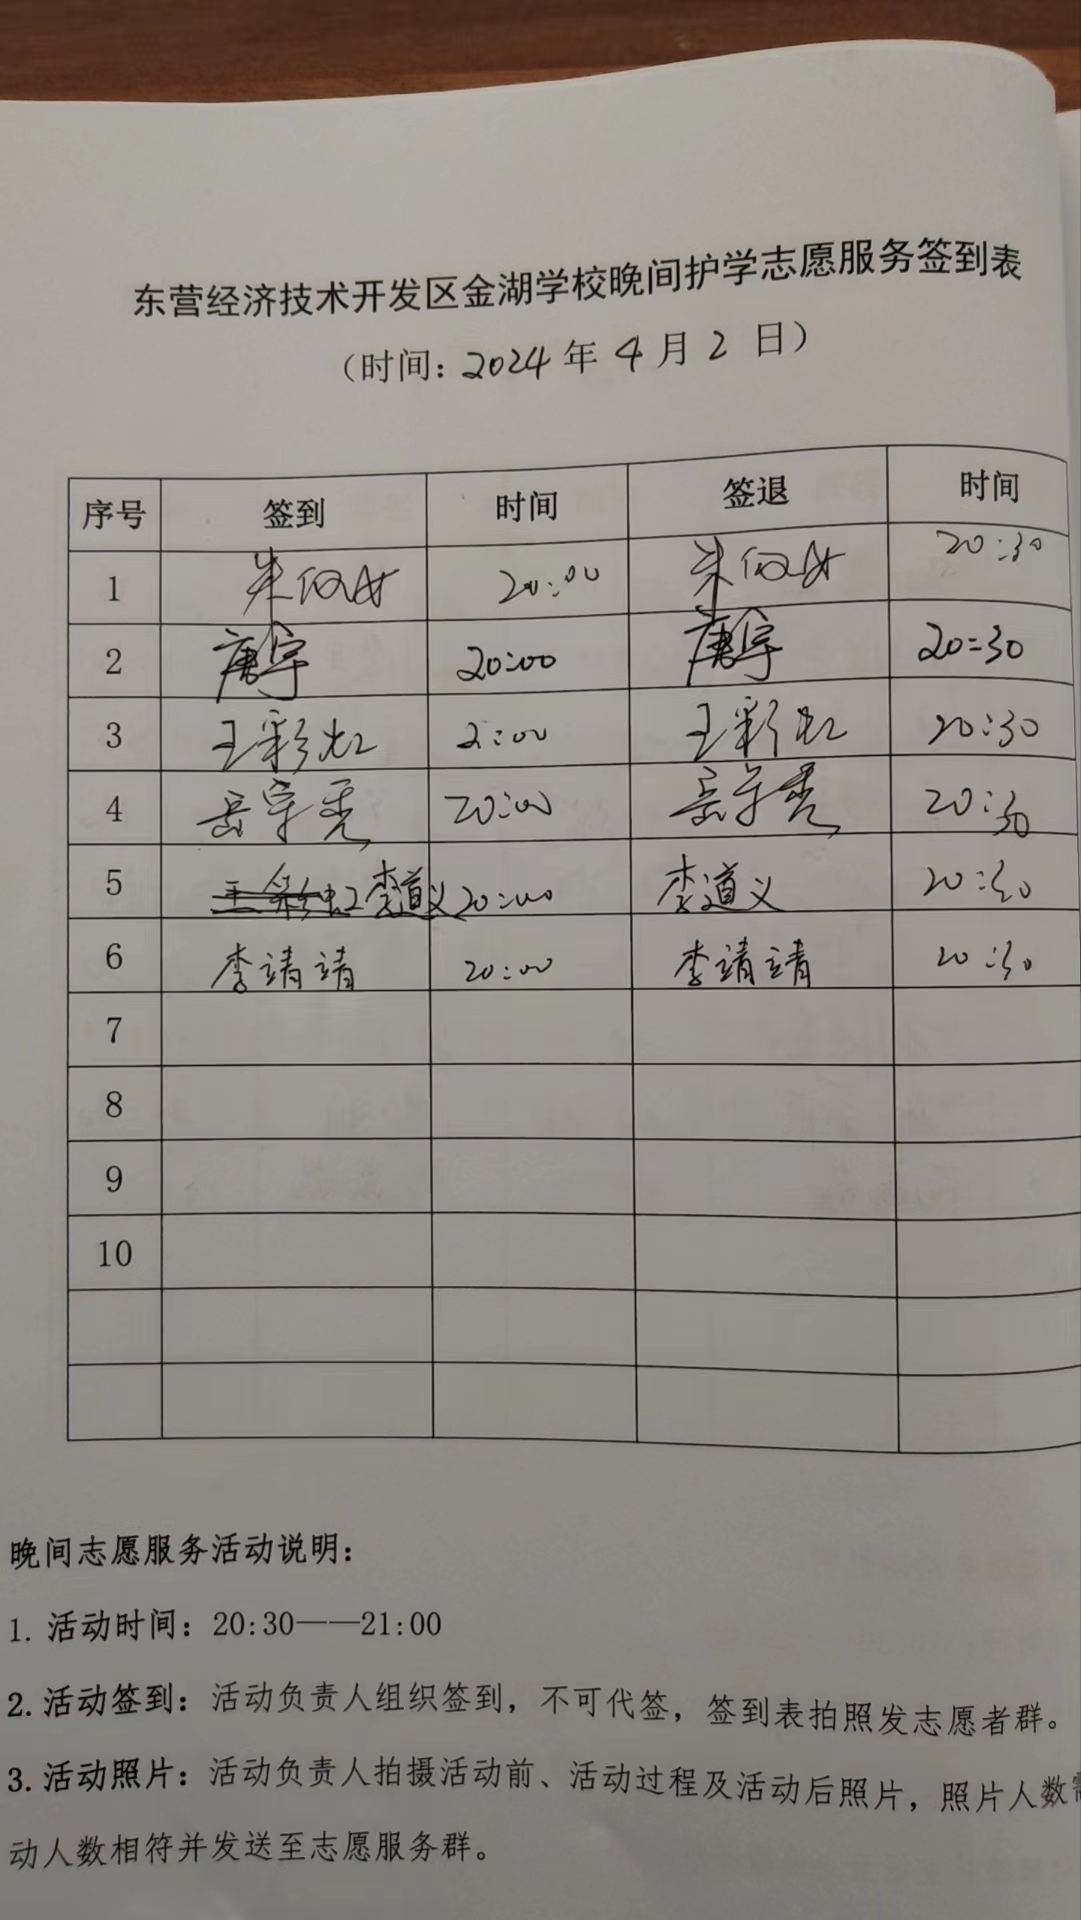 东营经济技术开发区金湖学校晚间护学志愿服务签到表
（时间：2024年4月2日）
序号 签到 时间 签退 时间
1 朱 20:00 朱 20:30
2 唐宇 20:00 唐宇 20:30
3 王彩虹 2:00 王彩虹 20:30
4 岳宇秀 20:00 岳宇秀 20:30
5 王彩虹 李道义 20:00 李道义 20:30
6 李靖靖 20:00 李靖靖 20:30
7
8
9
10
晚间志愿服务活动说明：
1. 活动时间：20:30——21:00
2. 活动签到：活动负责人组织签到，不可代签，签到表拍照发志愿者群。
3. 活动照片：活动负责人拍摄活动前、活动过程及活动后照片，照片人数
动人数相符并发送至志愿服务群。